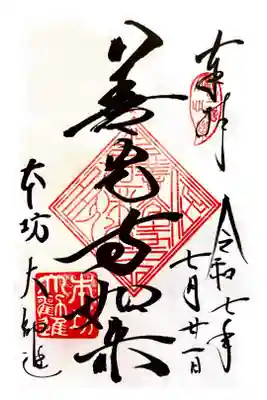 奉拝
令和七年
七月廿一日
善光寺如来
本坊 大勧進